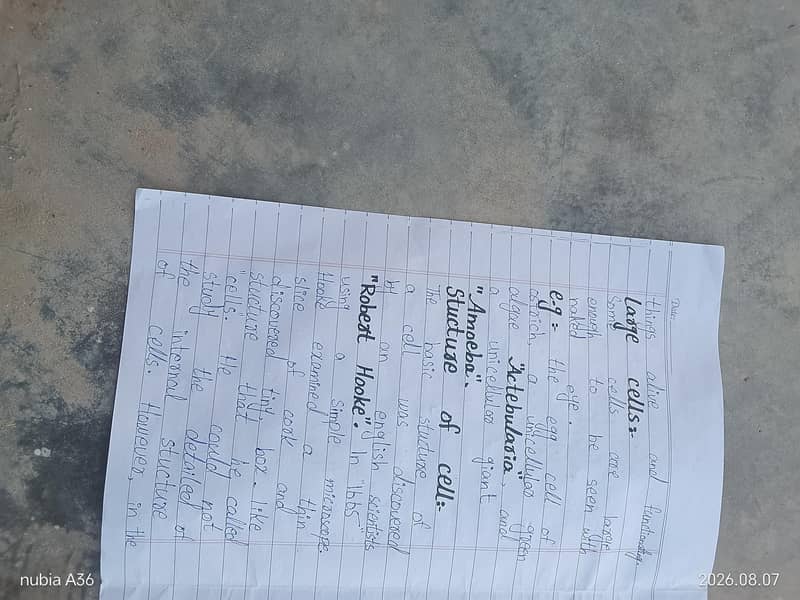 Date:
things alive and functioning.
large cells:-
Some cells are large
enough to be seen with
naked eye.
e.g:- the egg cell of
ostrich, a unicellular green
algae "Actebularia" and
a unicellular giant
"Amoeba".
Stucture of cell:-
The basic stucture of
a cell was discovered
by an english scientists
"Robert Hooke". In 1665
using a simple microscope.
Hooke examined a thin
slice of cork and
discovered tiny, box-like
structure that he called
"cells. He could not
study the detailed of
the internal structure
of cells. However, in the
nubia A36
2026.08.07